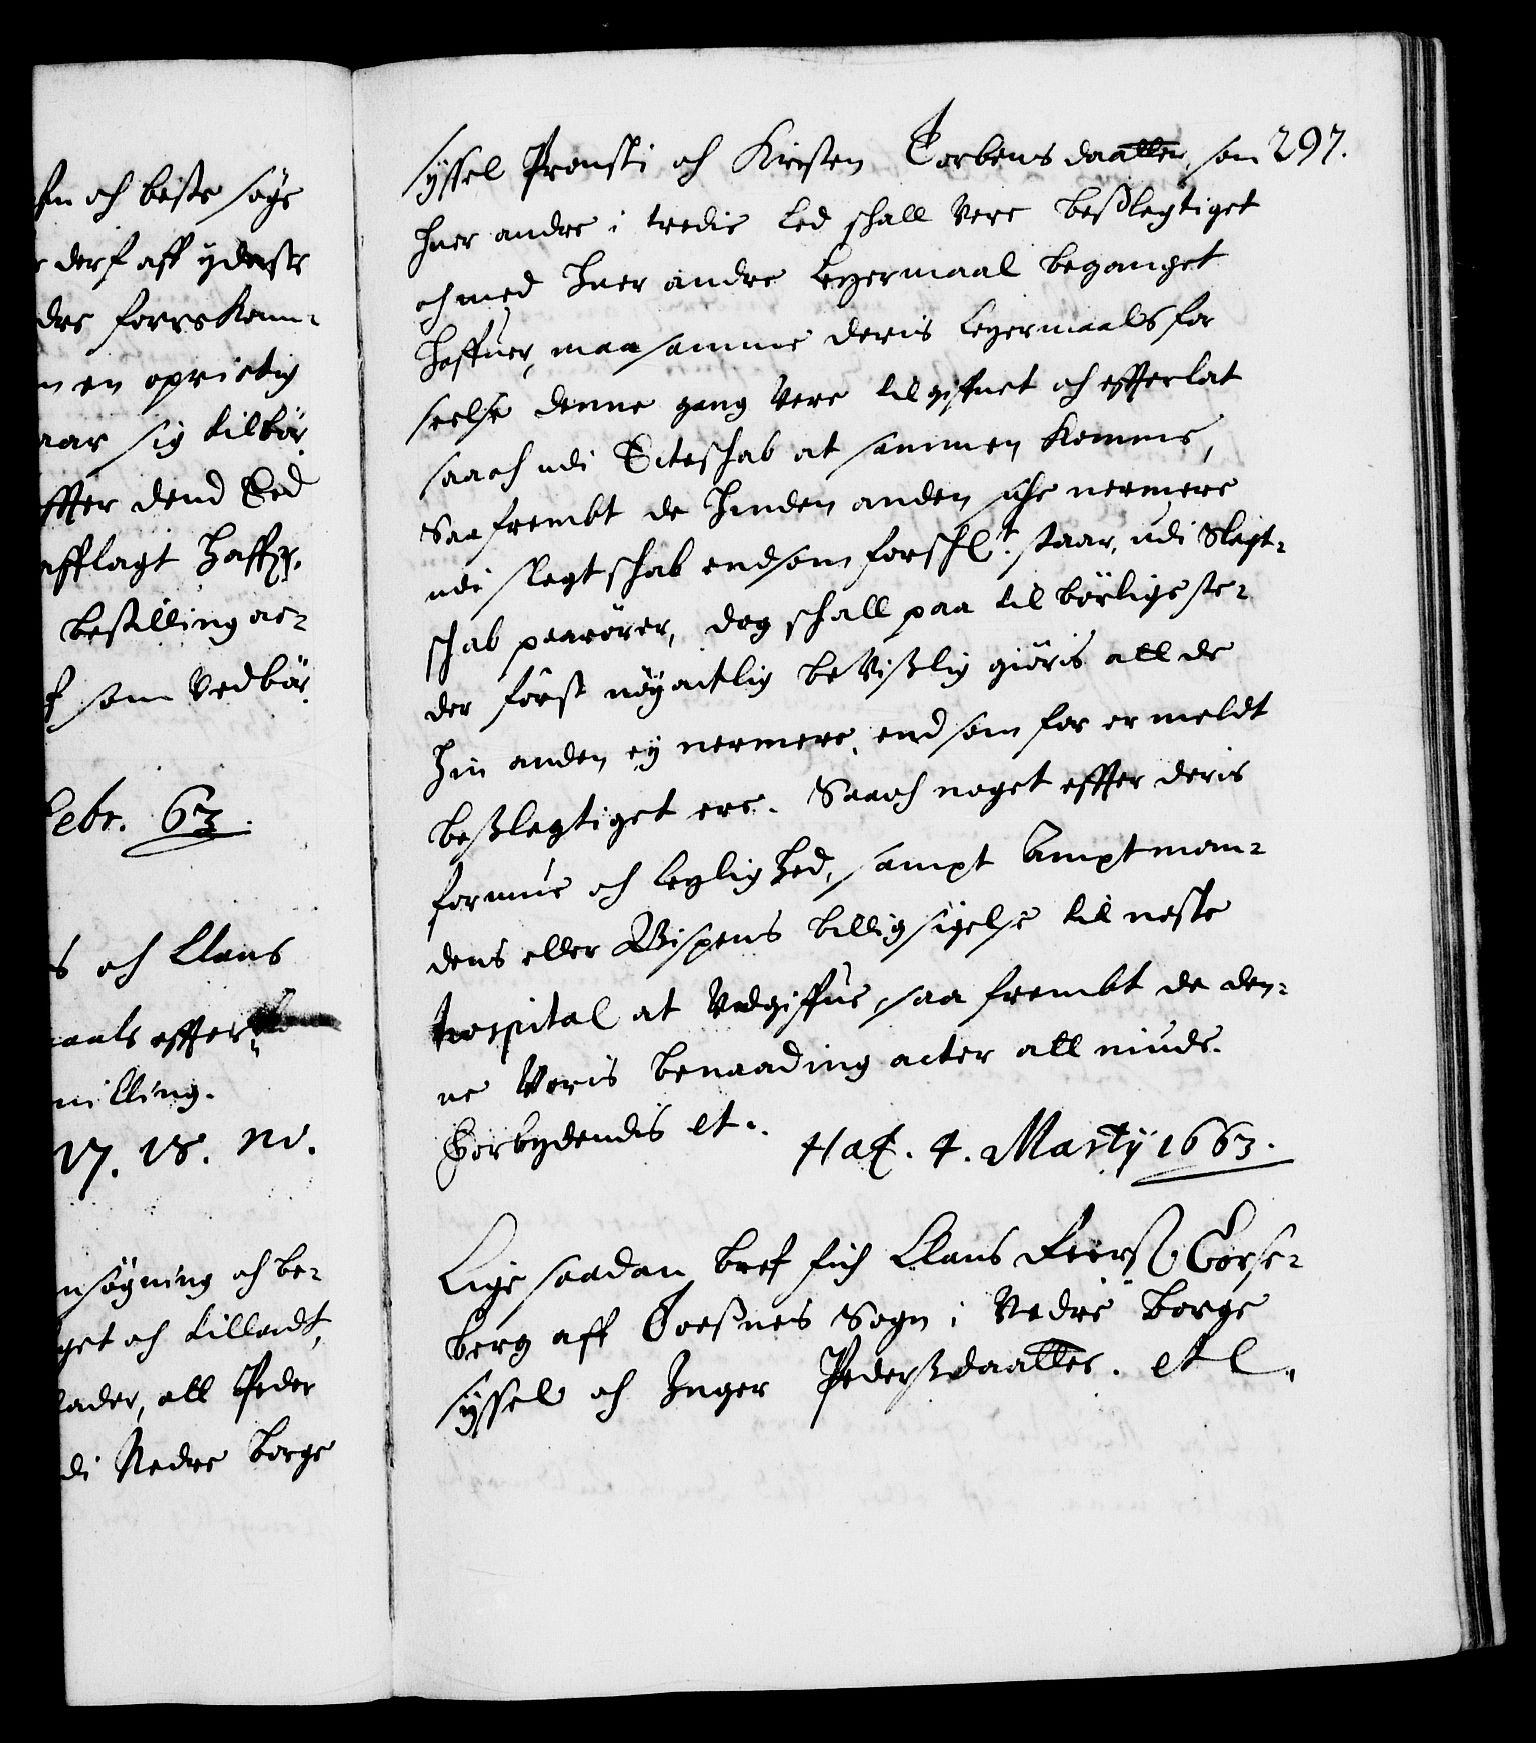 fn och beste søge
derf aff yderste
dre forrekom-
n en oprictig
aar sig tilbør
effter dend Eed
afflagt haffr.
bestilling ac-
f som Vedbør
Febr. 63.
s och Claus
aals effter
milling.
17. 18. No.
nsøgning och be-
get och tilladt,
lader, att Peder
di Nedre Borge
297.
syssel Prousti och Kirsten Torbens daatter som
huer andre i tredie Led schall Vere beslegtiget
och med huer andre Leyermaal beganget
haffuer, maa samme deris Leyermaals for
seelse denne gang Vere tilgiftuet och efferlat
saa och udi Ecteschab at sammen komme,
Saa frembt de hinden anden iche nermere
udi slegtschab end som forschl:t staar, udi Slegt-
schab paarører, dog schall paa tilbørlige ste-
der først nøyactlig beVislig giøris att de
hin anden ey nermere, end som for er meldt
beslegtiget ere. Saa och noget effter deris
formue och leylighed, sampt Amptman-
dens eller Bispens billigsigelse til neste
Hospital at Vdgiffue, saa frembt de den-
ne Voris benaading acter att niude.
Forbydendis et..
Haf. 4. Martij 1663.
Lige saadan bref fich Claus Feerss Torse-
berg aff Toesnes Sogn i Nedre Borge
syssel och Inger Pederssdaatter. etc.